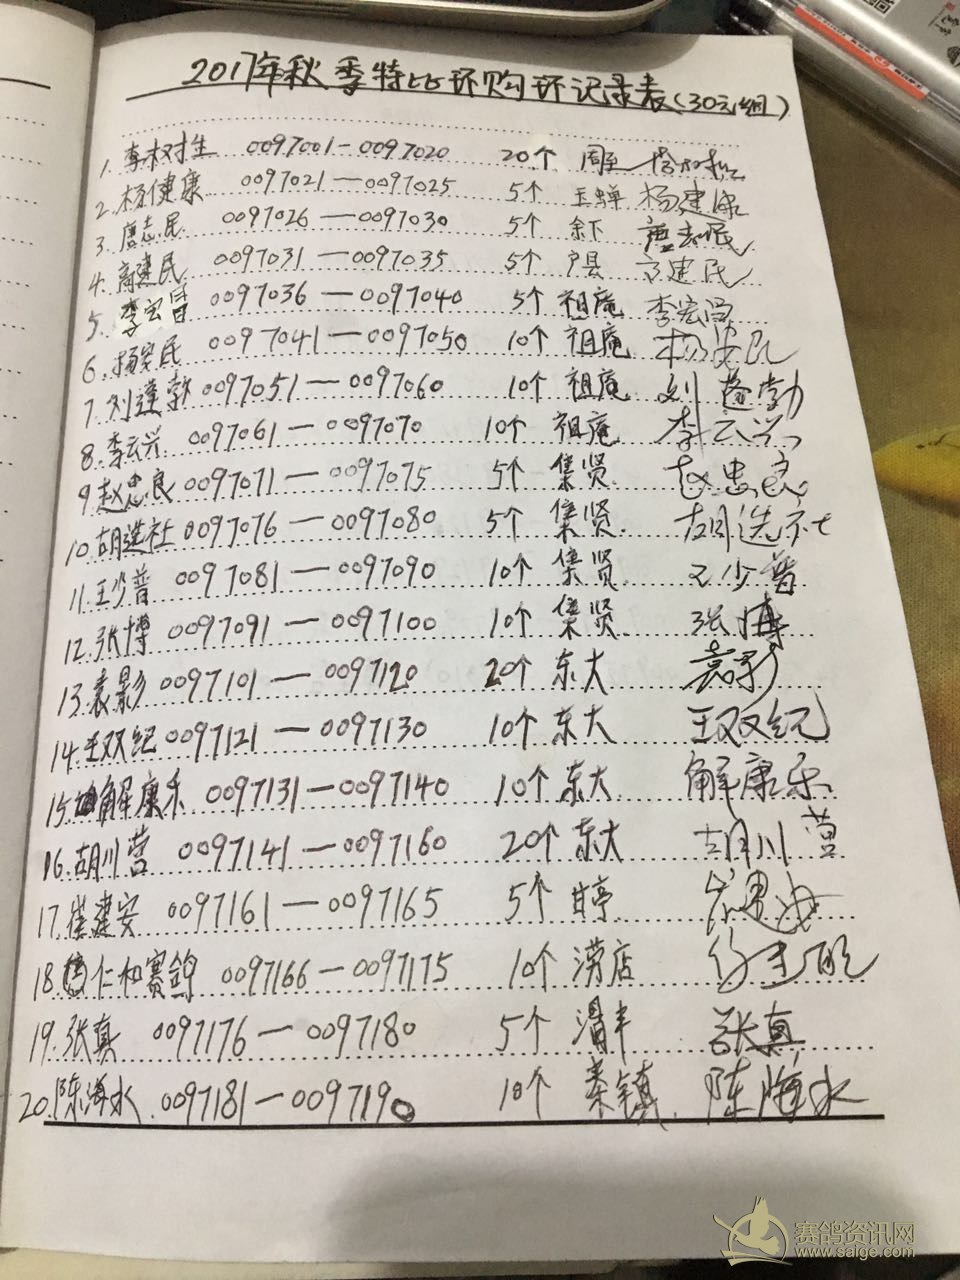 2017年秋季特比环购环记录表(30元组)
1. 李权对生 0097001-0097020 20个 周至
2. 杨健康 0097021—0097025 5个 玉蝉 杨建康
3. 唐志民 0097026—0097030 5个 余下 唐志民
4. 高建民 0097031—0097035 5个 户县 高建民
5. 李宏昌 0097036—0097040 5个 祖庵 李宏昌
6. 杨安民 0097041—0097050 10个 祖庵 杨安民
7. 刘蓬勃 0097051—0097060 10个 祖庵 刘蓬勃
8. 李云兴 0097061—0097070 10个 祖庵 李云兴
9. 赵忠良 0097071—0097075 5个 集贤 赵忠良
10. 胡选社 0097076—0097080 5个 集贤 胡选社
11. 王少普 0097081—0097090 10个 集贤 王少普
12. 张博 0097091—0097100 10个 集贤 张博
13. 袁影 0097101—0097120 20个 东大 袁影
14. 王双纪 0097121—0097130 10个 东大 王双纪
15. 解康乐 0097131—0097140 10个 东大 解康乐
16. 胡川营 0097141—0097160 20个 东大 胡川营
17. 崔建安 0097161—0097165 5个 甘亭
18. 仁和赛鸽 0097166—0097175 10个 涝店
19. 张真 0097176—0097180 5个 渭丰 张真
20. 陈海水 0097181—0097190 10个 秦镇 陈海水
赛鸽资讯网
www.saige.com